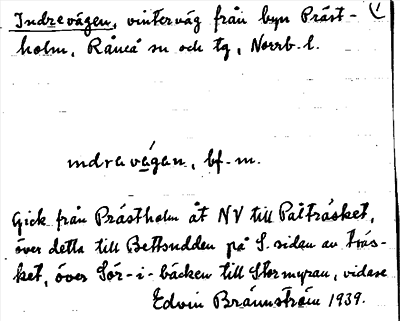 Indrevägen, vinterväg från byn Präst-
holm, Råneå sn och tg, Norrb. l.
1
ındra vägan, bf. m.
Gick från Prästholm åt NV till Palträsket,
över detta till Bettsudden på S. sidan av träs-
ket, över Sör-i-bäcken till Stormyran, vidare
Edvin Brännström 1939.